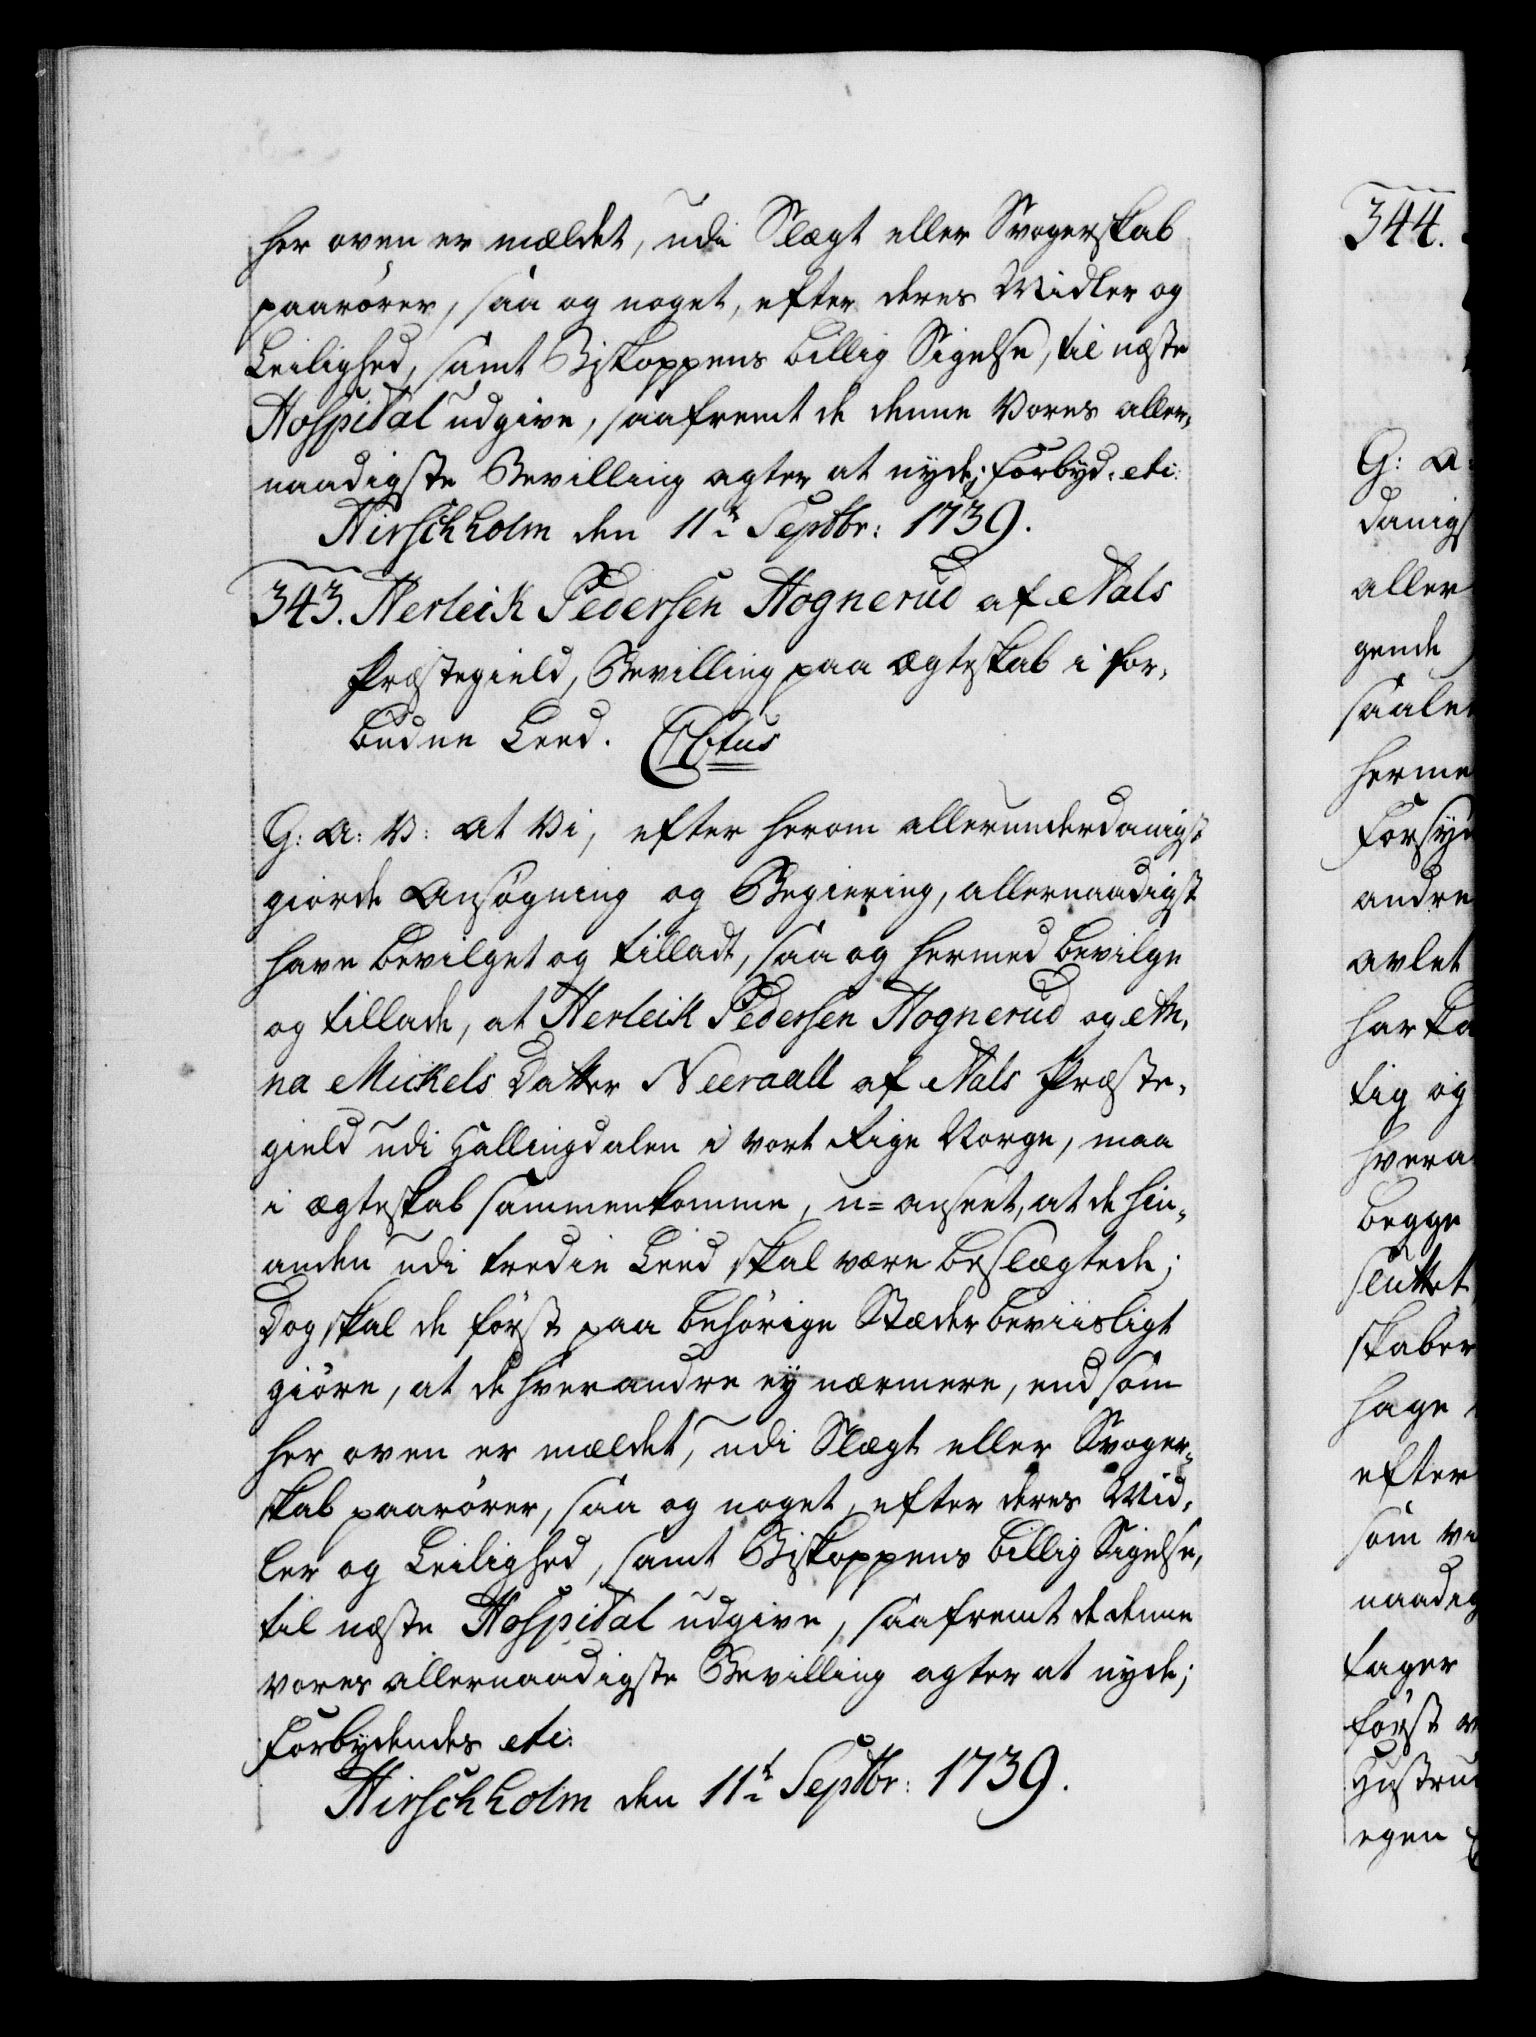 her oven er mældet, udi Slægt eller Svogerskab
paarörer, saa og noget, efter deres Midler og
Leilighed, samt Biskoppens billig Sigelse, til næste
Hospital udgive, saafremt de denne Vores aller-
naadigste Bevilling agter at nyde; Forbyd: etc:
Hirschholm den 11te Septbr: 1739.
343. Herleik Pedersen Hognerud af Aals
Præstegield, Bevilling paa Ægteskab i for-
budne Leed.
G: A: V: at Vi, efter herom allerunderdanigst
giorde Ansögning og Begiering, allernaadigst
have bevilget og tilladt, saa og hermed bevilge
og tillade, at Herleik Pedersen Hognerud og An-
na Mickels Datter Neeraall af Aals Præste-
gield udi Hallingdalen i vort Rige Norge, maa
i Ægteskab sammenkomme, u=anseet, at de hin-
anden udi tredie Leed skal være beslægtede;
Dog skal de först paa behörige Stæder beviisligt
giöre, at de hverandre ey nærmere, end som
her oven er mældet, udi Slægt eller Svoger-
skab paarörer, saa og noget, efter deres Mid-
ler og Leilighed, samt Biskoppens billig Sigelse,
til næste Hospital udgive, saafremt de denne
vores allernaadigste Bevilling agter at nyde;
Forbydendes etc:
Hirschholm den 11te Septbr: 1739.
344.
G: A:
danigs
aller
gende
saale
herme
Forsyn
andre
avlet
har
tig og
hvera
begge
sluttet
skaber
hage
efter
som
naadig
tager
först
Hustru
egen